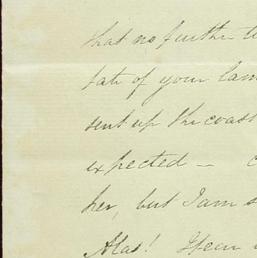 that no further
fate of your
sent up the coast
expected —
her, but I am
Alas! I fear